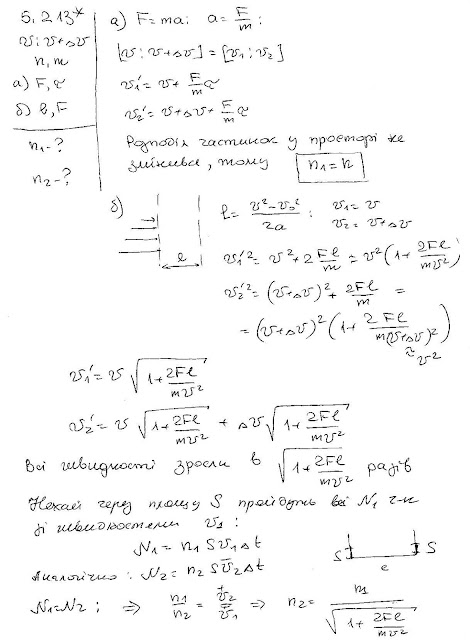 5.213*
v; v+Δv
n, m
а) F, τ
б) l, F
n₁-?
n₂-?
а) F=ma; a=F/m;
[v; v+Δv]=[v₁; v₂]
v₁'=v+F/m τ
v₂'=v+Δv+F/m τ
Розподіл частинок у просторі не
змінився, тому n₁=n
б)
l
l=(v²-v₀²)/2a; v₁=v
v₂=v+Δv
v₁'²=v²+2Fl/m=v²(1+2Fl/mv²)
v₂'²=(v+Δv)²+2Fl/m=
=(v+Δv)²(1+2Fl/m(v+Δv)²)
≈v²
v₁'=v√(1+2Fl/mv²)
v₂'=v√(1+2Fl/mv²)+Δv√(1+2Fl/mv²)
Всі швидкості зросли в √(1+2Fl/mv²) разів
Нехай через площу S пройдуть всі N₁ ч-к
зі швидкостями v₁:
N₁=n₁Sv₁Δt
Аналогічно: N₂=n₂Sv₂Δt
S l S
N₁=N₂; ⇒ n₁/n₂=v₂/v₁ ⇒ n₂=n₁/√(1+2Fl/mv²)